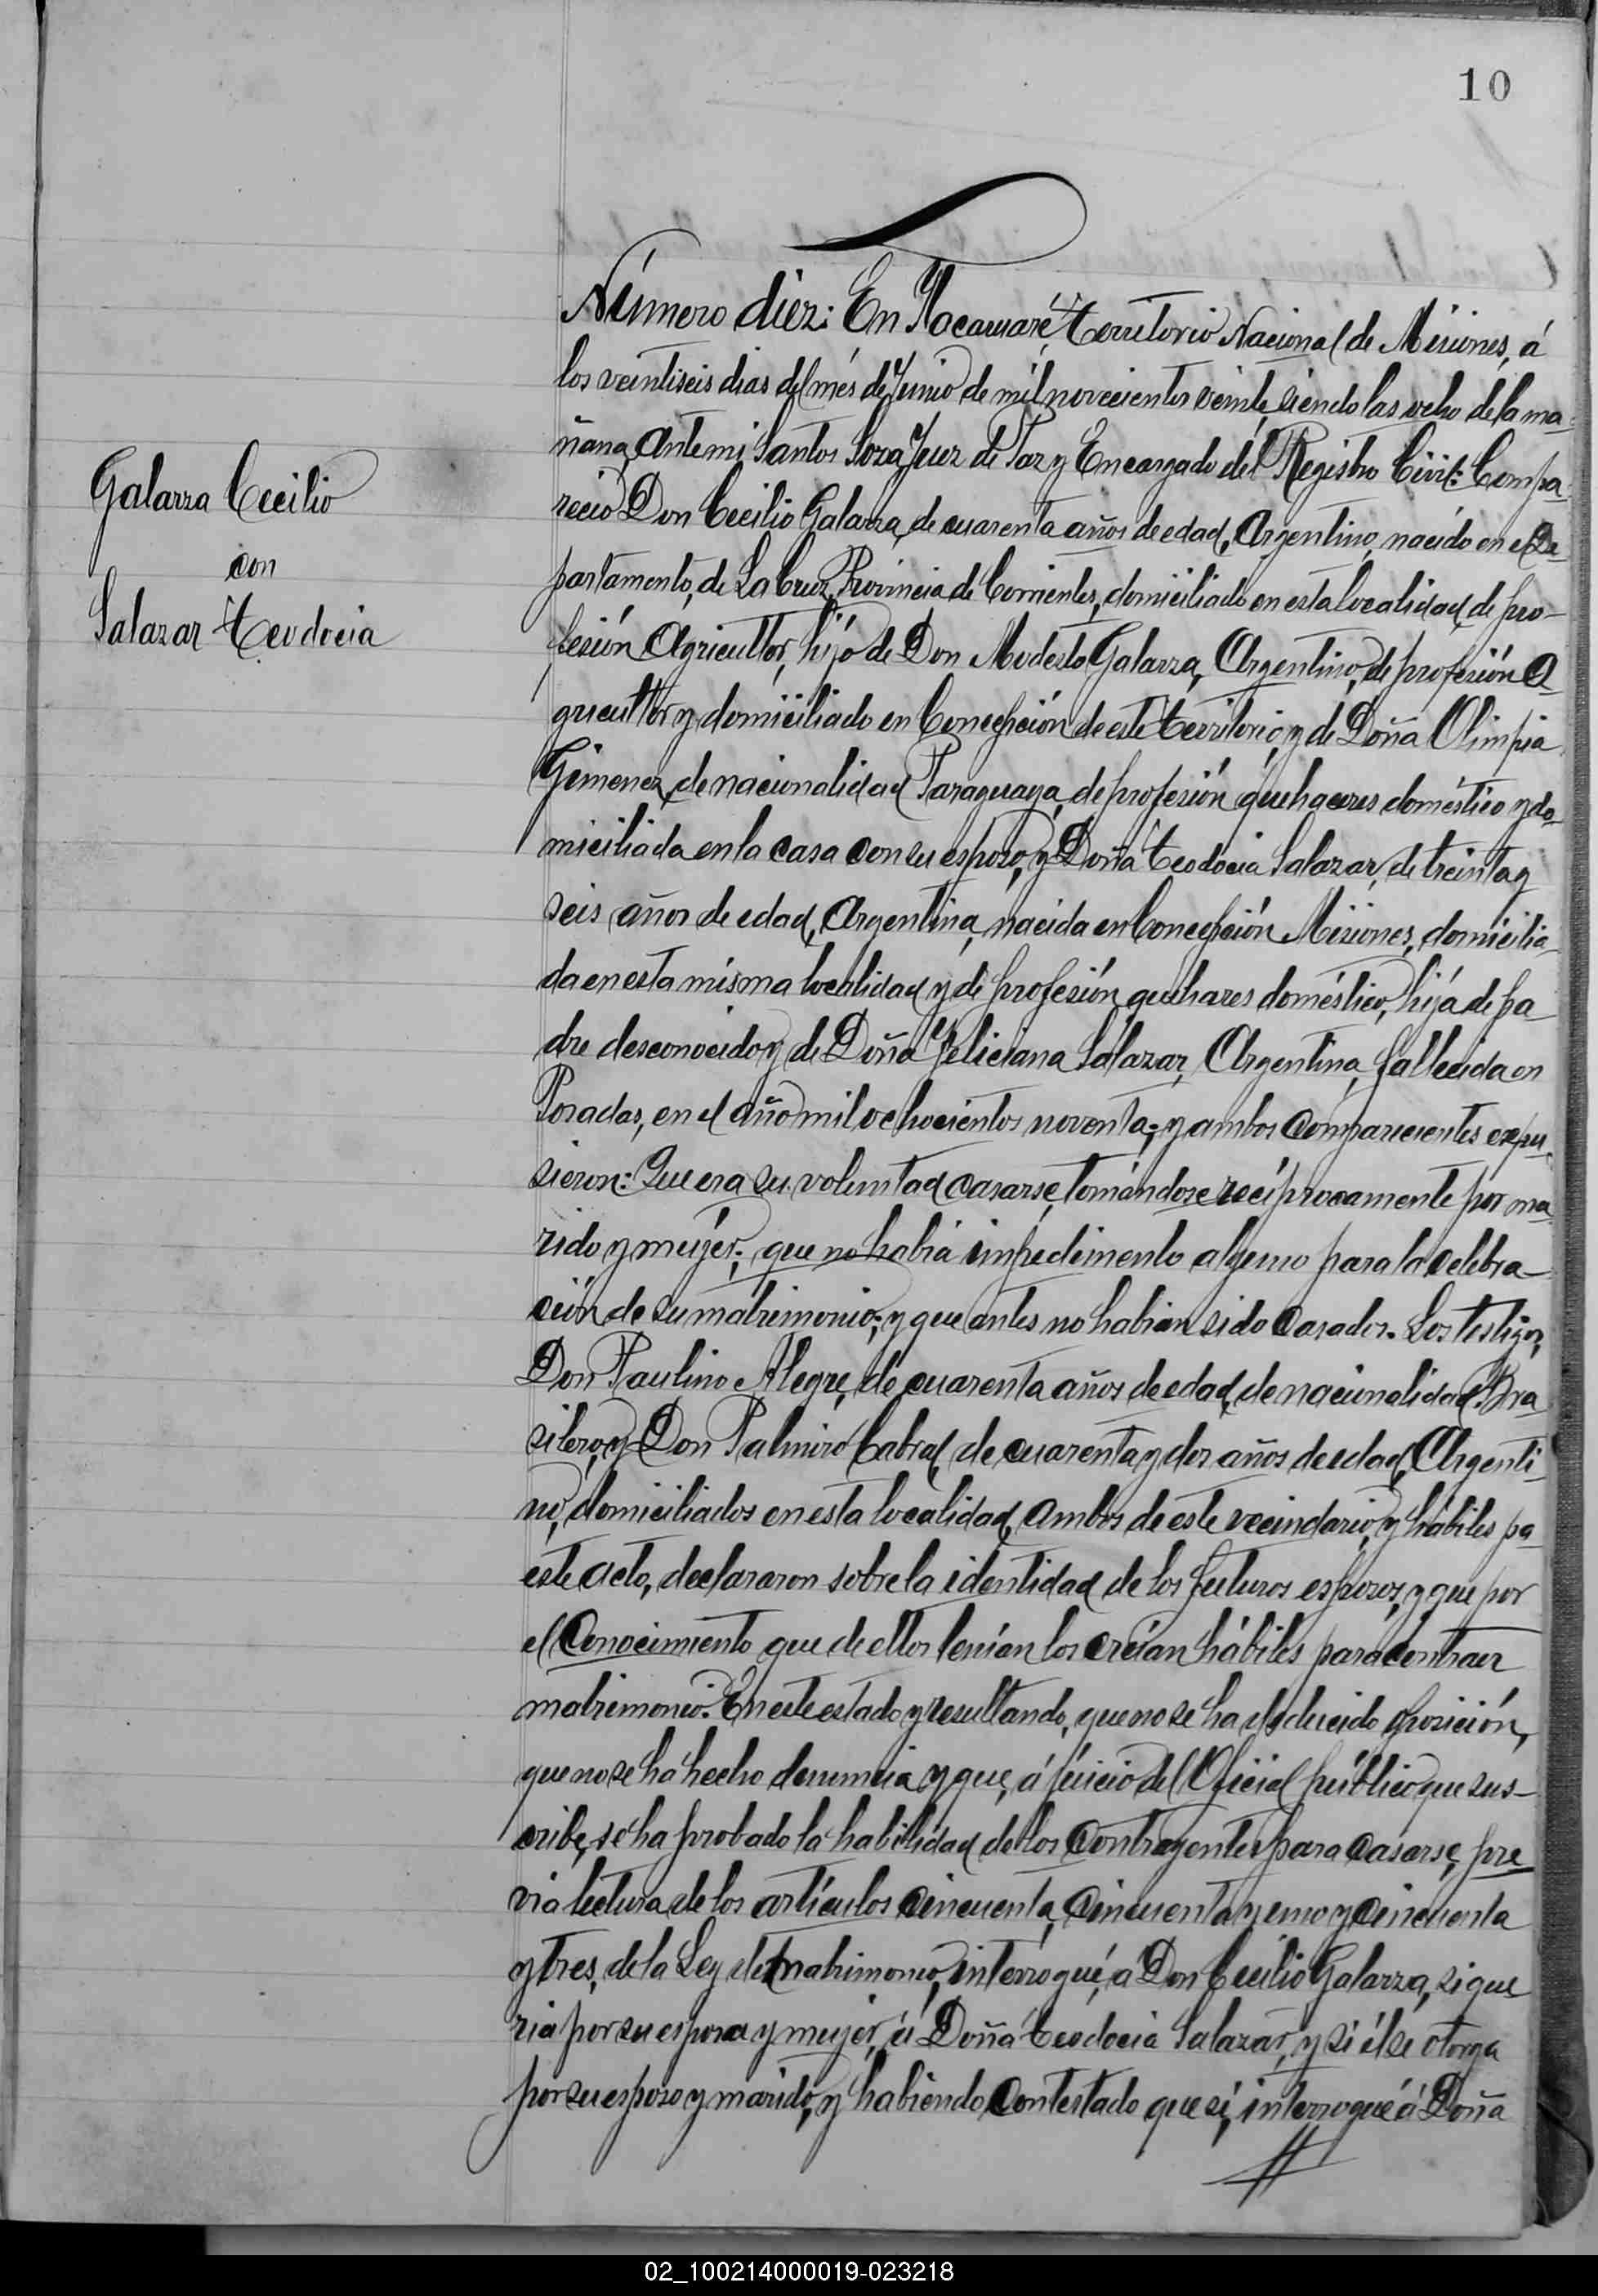 10
Número diez: En Yocamaré, territorio Nacional de Misiones, á
los veintiseis dias del més de Junio de mil novecientos veinte, siendo las ocho de la ma-
ñana, Ante mi Santos Soza Juez de Paz y Encargado del Registro Civil: Compa-
reció Don Cecilio Galarza, de cuarenta años de edad, Argentino, nacido en el De-
partamento, de La Cruz, Provincia de Corrientes, domiciliado en esta localidad, de pro-
fesión Agricultor, hijo de Don Modesto Galarza, Argentino, de profesión A-
gricultor y domiciliado en Concepción de este territorio, y de Doña Olimpia
Gimenez, de nacionalidad Paraguaya, de profesión quehaceres doméstico y do-
miciliada en la casa con su esposo, y Doña Teodocia Salazar, de treinta y
seis años de edad, Argentina, nacida en Concepción Misiones, domicilia-
da en esta misma localidad y de profesión quehares doméstico, hija de pa-
dre desconocido y de Doña Feliciana Salazar, Argentina, fallecida en
Posadas, en el año mil ochocientos noventa; y ambos comparecientes expu-
sieron: Que era su voluntad casarse, tomándose recíprocamente por ma-
rido y mujér; que no habia impedimento alguno para la celebra-
ción de su matrimonio; y que antes no habian sido casados. Los testigos,
Don Paulino Alegre, de cuarenta años de edad, de nacionalidad Bra-
silero, y Don Palmiro Cabral, de cuarenta y dos años de edad, Argenti-
no, domiciliados en esta localidad, ambos de este vecindario, y hábiles pa
este acto, declararon sobre la identidad de los futuros esposos, y que por
el conocimiento que de ellos tenían los creían hábiles para contraer
matrimonio. En este estado y resultando, que no se ha deducido oposición,
que no se ha hecho denuncia y que, á juicio del Oficial público que sus-
cribe, se ha probado la habilidad de los contrayentes para casarse, pre
via lectura de los artículos cincuenta, cincuenta y uno y cincuenta
y tres, de la Ley de matrimonio, interrogué, á Don Cecilio Galarza, si que
ria por su esposa y mujer, á Doña Teodocia Salazar, y si él se otorga
por su esposo y marido, y habiendo contestado que si, interrogué á Doña
Galarza Cecilio
con
Salazar Teodocia
02_100214000019-023218